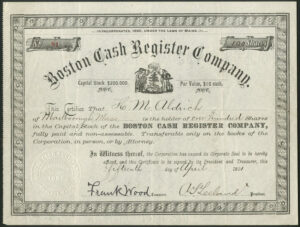 INCORPORATED, 1890, UNDER THE LAWS OF MAINE.
Boston Cash Register Company.
Capital Stock $500,000. Par Value, $10 each.
This Certifies That H. M. Aldrich
of Marlborough Mass is the holder of One Hundred Shares
in the Capital Stock of the BOSTON CASH REGISTER COMPANY,
fully paid and non-assessable. Transferable only on the books of the
Corporation, in person, or by Attorney.
In Witness thereof, the Corporation has caused its Corporate Seal to be hereto
affixed, and this Certificate to be signed by its President and Treasurer, this
Fifteenth day of April 1891
Frank Wood Treasurer President